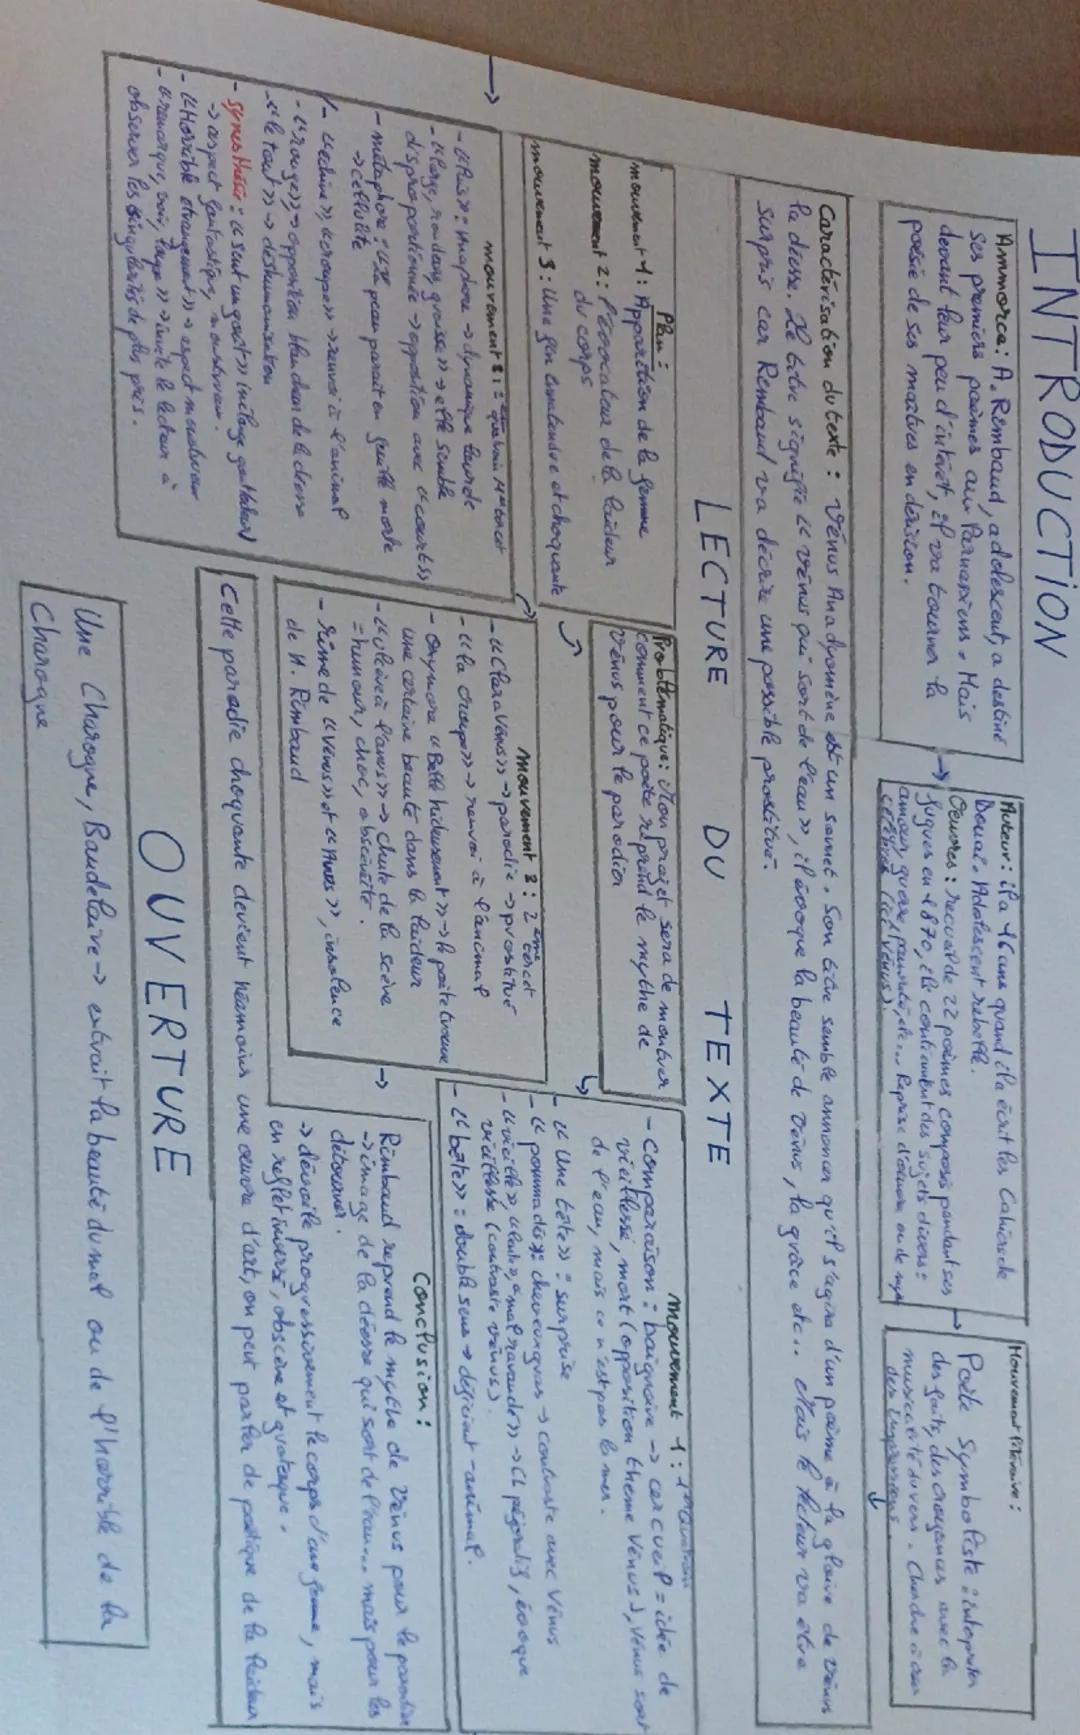 INTRODUCTION
Ammorce: A. Rimbaud, adolescent, a destiné
ses premiers poèmes aux Parnassiens. Mais
devant leur peu d'intérêt, il va tourner la
poésie de ses maîtres en dérision.
Auteur: il a 16 ans quand il a écrit les Cahiers de
Douai. Adolescent rebelle.
Oeuvres: recueil de 22 poèmes composé pendant ses
fugues en 1870, ils contiennent des sujets divers:
amour, guerre, pauvreté, etc... Reprise d'oeuvre ou de
célèbres
Mouvement littéraire:
Poète Symboliste:
des faits, des croyances avec la
musicalité du vers. Cherche à
des impressions.
Caractérisation du texte: Vénus Anadyomène est un sonnet. Son titre semble annoncer qu'il s'agira d'un poème à la gloire de Vénus
la déesse. Le titre signifie "Vénus qui sort de l'eau", il évoque la beauté de Vénus, la grâce etc.. Mais le lecteur va être
surpris car Rembaud va décrire une possible prostituée.
LECTURE DU TEXTE
Plan:
mouvement 1: Apparition de la femme
mouvement 2: l'évocation de la laideur
du corps
mouvement 3: Une fin inattendue et choquante
Problématique: Mon projet sera de montrer
comment ce poète reprend le mythe de
Vénus pour le parodier
mouvement 1: 1er quatrain
- Comparaison: baignoire → cercueil = idée de
vieillesse, mort (opposition theme Vénus), Vénus sort
de l'eau, mais ce n'est pas la mer.
- "Une tête": surprise
- "pommadés": cheveux gras → contraste avec Vénus
- "vieille", "lente", "mal ravaudés" → CL péjoratif, évoque
vieillesse (contraste vénus).
- "bête": double sens → déficient - animal.
mouvement 2: quatrain 1er tercet
- "Puis": → dynamique lourde
- "large, rondeur, graisse" → elle semble
disproportionnée → opposition avec "court"
- métaphore: "la peau parait en feuille morte
→ cellulite
- "echine", "croupe" → renvoi à l'animal
- "rouge" → opposition blancheur de la déesse
- "le tout" → deshumanisation
- synesthésie: "sent un goût" mélange goût/odeur
→ aspect fantastique,
- "Horrible étrangement" → aspect
- "remarque, voir, loupe" → invite le lecteur à
observer les singularités de plus près.
mouvement 3: 2ème tercet
- "Clara Vénus" → parodie → prostitué
- "la croupe" → renvoi à l'animal
- Oxymore "Belle hideusement" → le poète trouve
une certaine beauté dans la laideur
- "ulcère à l'anus" → chute de la scène
= humour, choc, obscénité.
- Rime de "Vénus" et "Anus", insolence
de A. Rimbaud
Conclusion:
Rimbaud reprend le mythe de Vénus pour le parodier
→ image de la déesse qui sort de l'eau... mais pour les
détourner.
→ dévoile progressivement le corps d'une femme, mais
en reflet inversé, obscène et grotesque.
Cette parodie choquante devient néamoins une œuvre d'art, on peut parler de poétique de la laideur
OUVERTURE
Une Charogne, Baudelaire → extrait la beauté du mal ou de l'horrible de la
Charogne